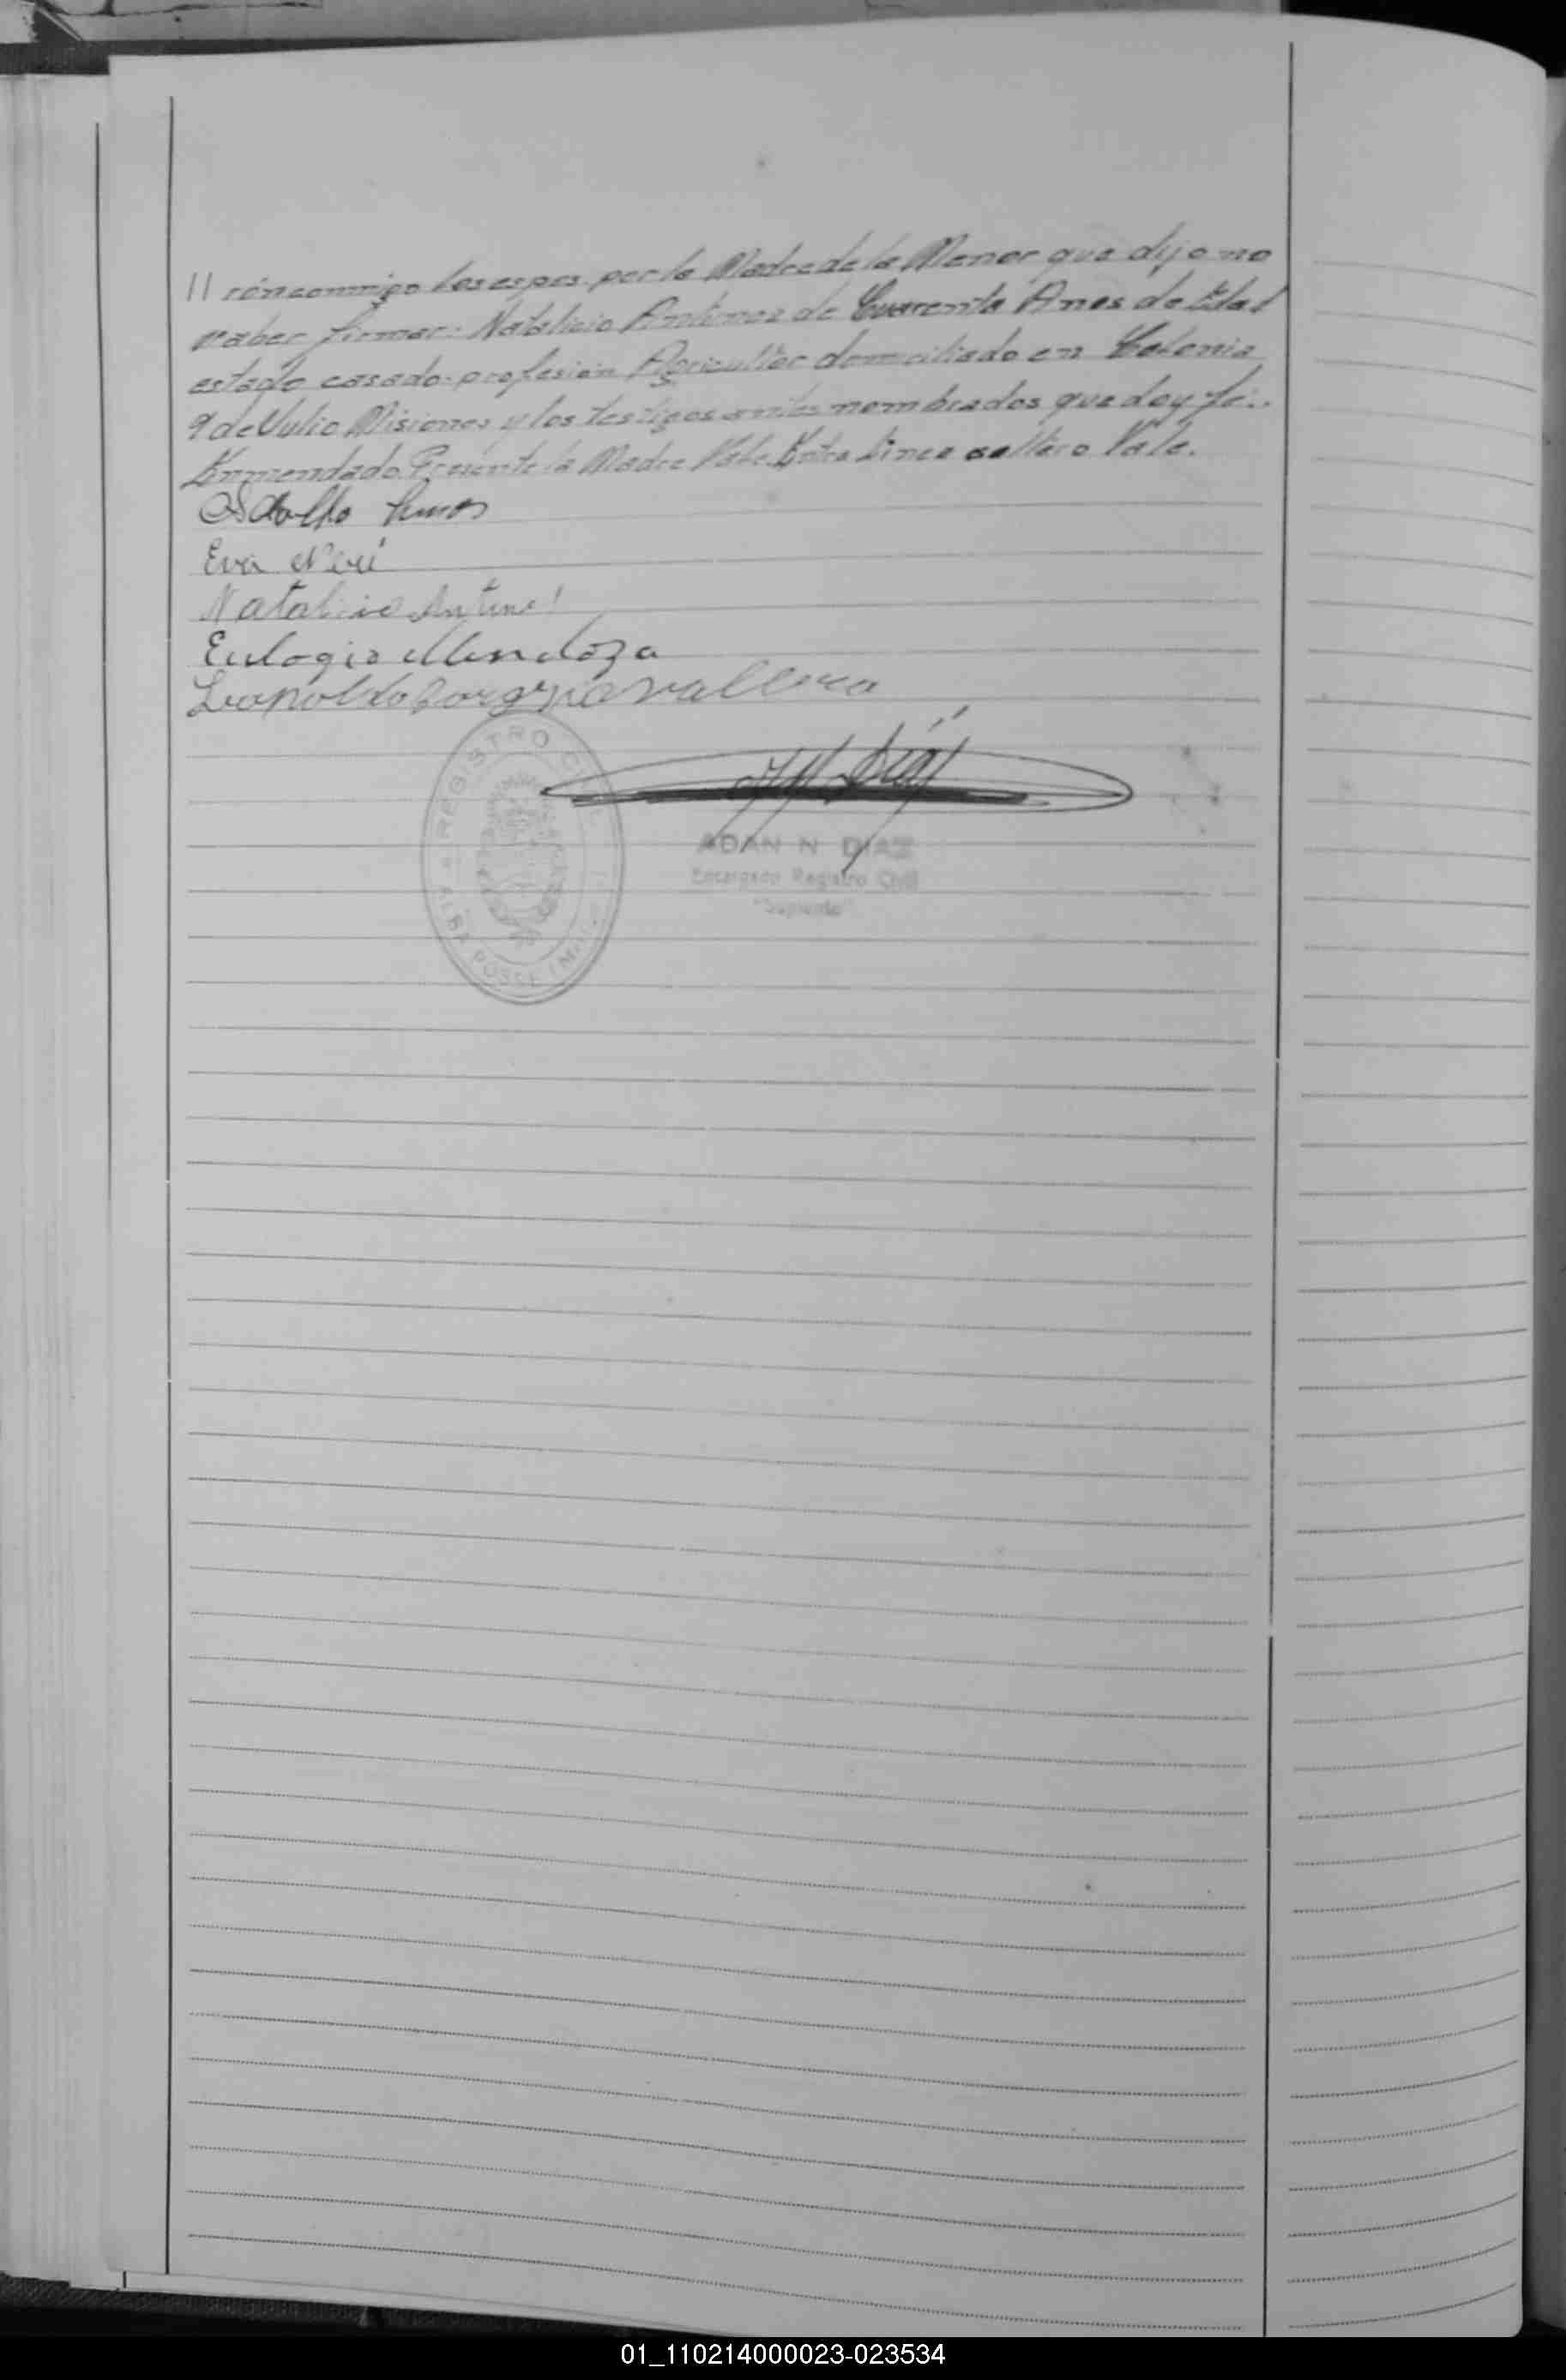 // rón conmigo los espos. por la Madre de la Menor que dijo no
saber firmar: Natalicio Antunez de Cuarenta Anos de Edad
estado casado profesión Agricultor domiciliado en Colonia
9 de Julio Misiones y los testigos antes nombrados que doy fé..
Enmendado. Presente la Madre Vale. Entre Linea soltero Vale.
Adolfo
Eva Nerí
Natalicio Antunez
Eulogio Mendoza
Leopoldo
REGISTRO CIVIL
ALBA POSSE (Mnes.)
ADAN N DIAZ
Encargado Registro Civil
"Suplente"
01_110214000023-023534